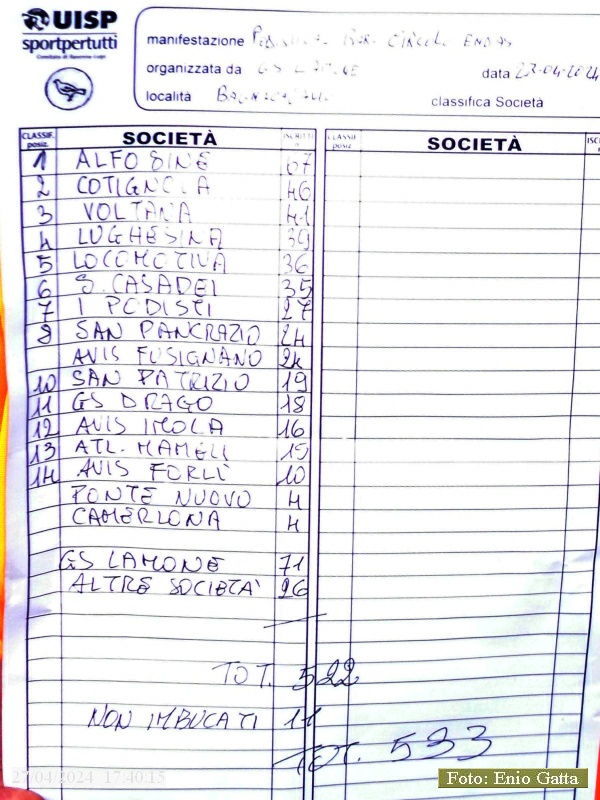 UISP
sportpertutti
Comitato di Ravenna-Lugo
manifestazione CIRCOLI ENDAS
organizzata da GS LAMONE data 23-04-2024
località BAGNACAVALLO classifica Società
CLASSIF. posiz. SOCIETÀ ISCRITTI n CLASSIF. posiz. SOCIETÀ
1 ALFONSINE 67
2 COTIGNOLA 46
3 VOLTANA 41
4 LUGHESINA 39
5 LOCOMOTIVA 36
6 S. CASADEI 35
7 I PODISTI 27
8 SAN PANCRAZIO 24
AVIS FUSIGNANO 24
10 SAN PATRIZIO 19
11 GS DRAGO 18
12 AVIS IMOLA 16
13 ATL. MAMELI 15
14 AVIS FORLÌ 10
PONTE NUOVO 4
CAMERLONA 4
GS LAMONE 71
ALTRE SOCIETA' 26
TOT. 522
NON IMBUCATI 11
TOT. 533
27/04/2024 17:40:15
Foto: Enio Gatta